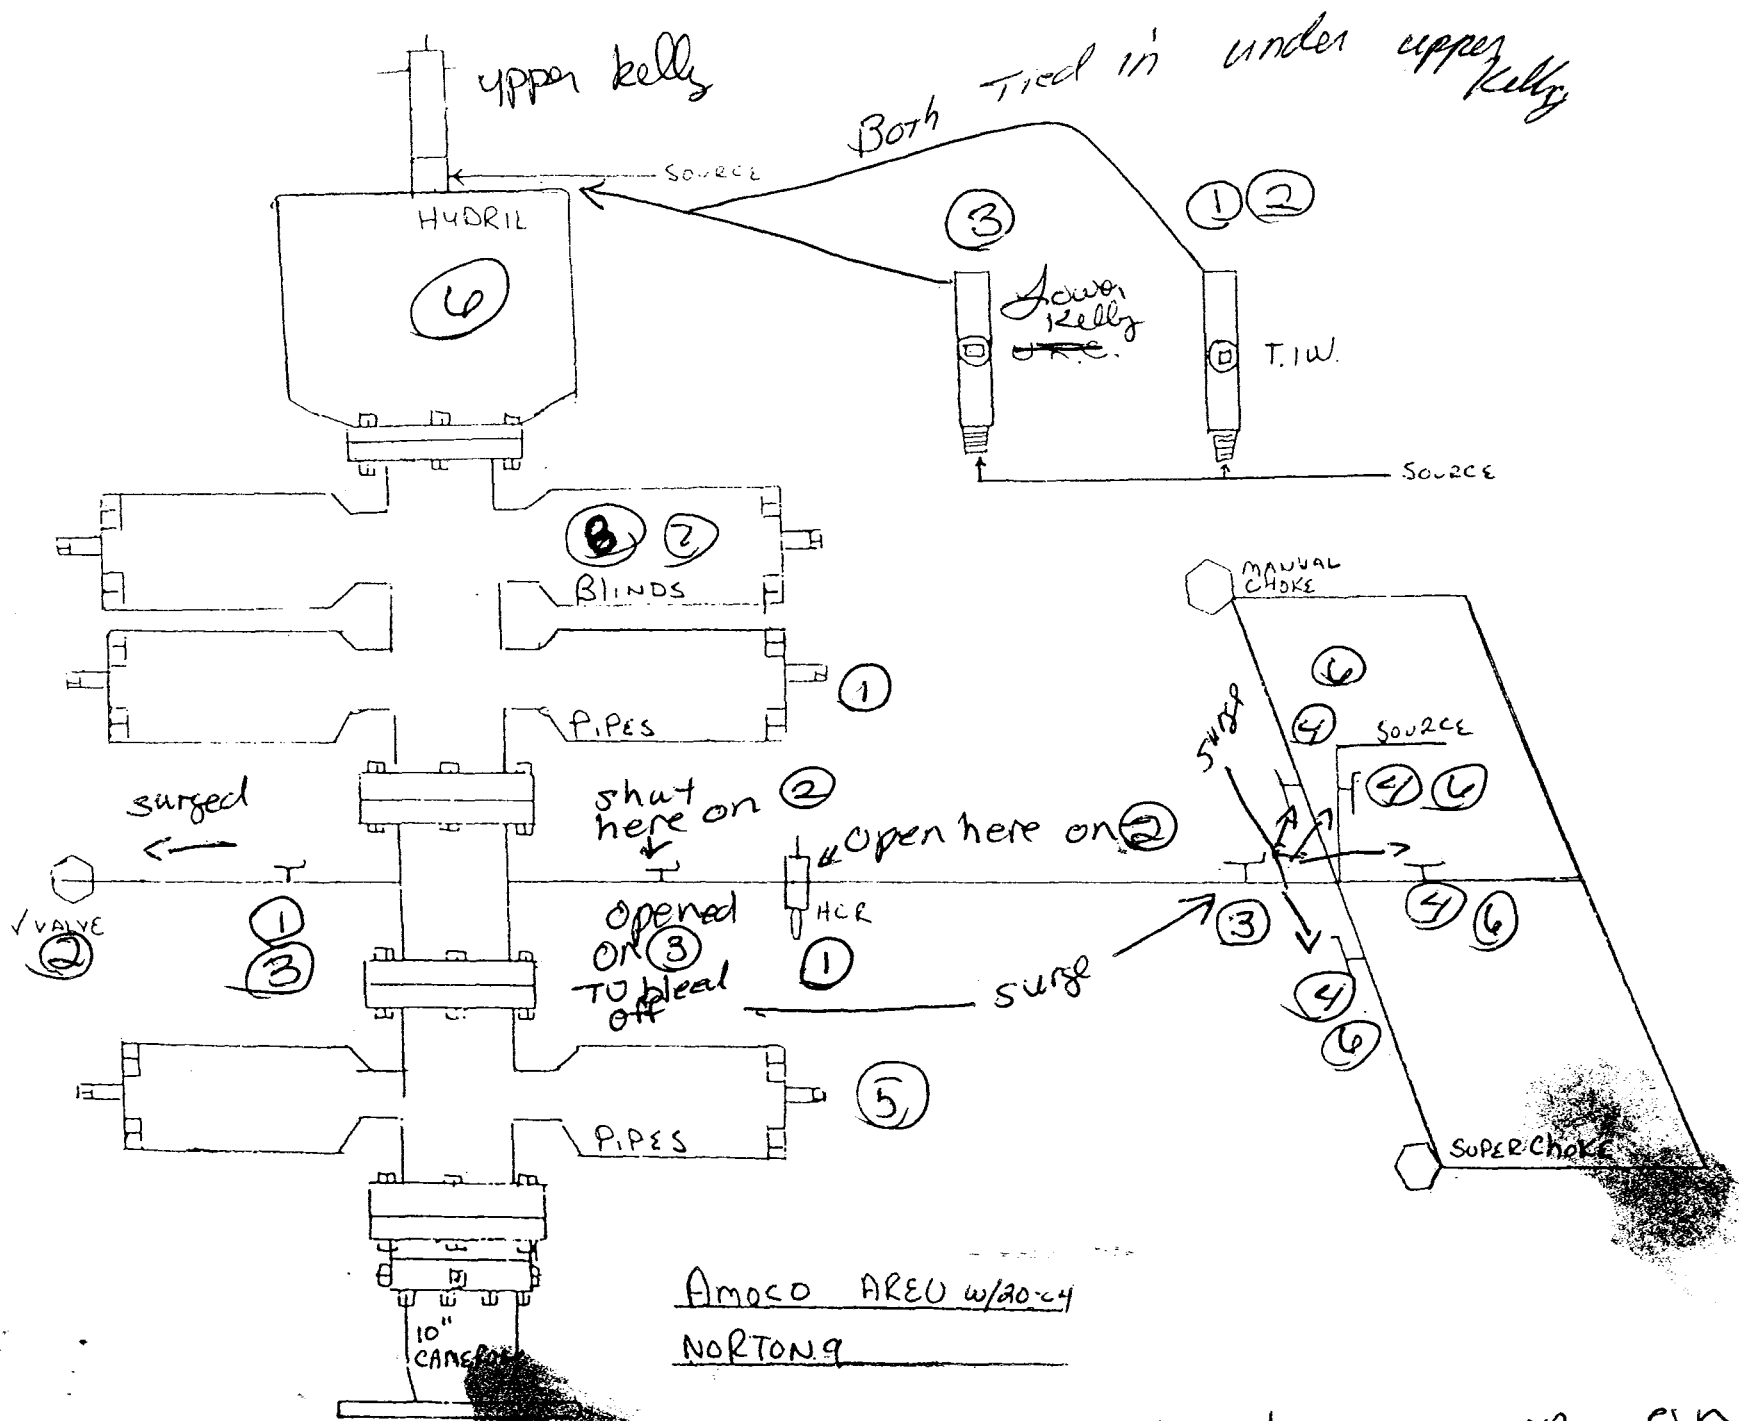 upper kelly
Both Tied in under upper
Kelly
SOURCE
HYDRIL
6
3
1 2
Lower
Kelly
T.I.W.
SOURCE
8 7
BLINDS
MANUAL
CHOKE
1
PIPES
6
4
surge
SOURCE
4 6
surged
shut
here on 2
open here on 2
✓ VALVE
2
1
3
opened
on 3
To bleed
off
HCR
1
3
4 6
surge
4
6
5
PIPES
SUPER CHOKE
AMOCO
NORTON 9
10"
CAMERON